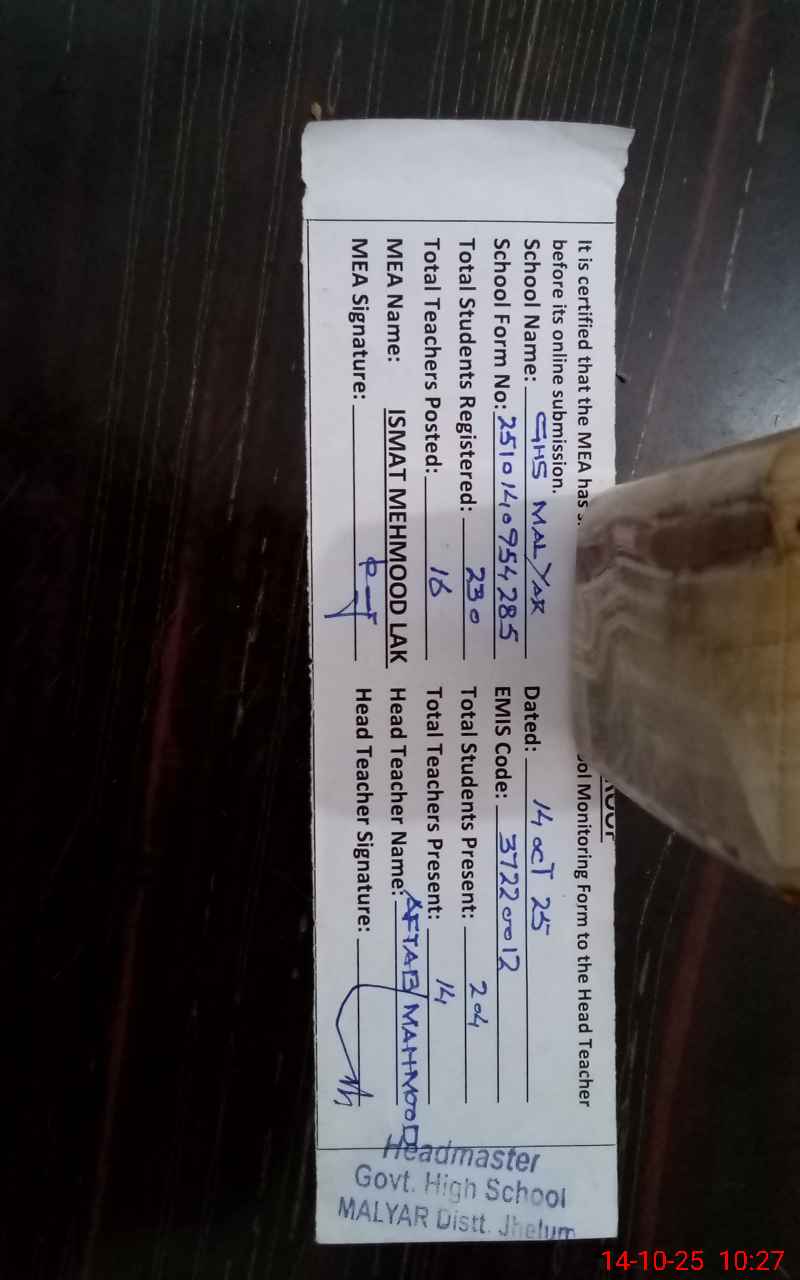 It is certified that the MEA has
ool Monitoring Form to the Head Teacher
before its online submission.
School Name: GHS MALYAR Dated: 14 OCT 25
School Form No: 2510140954285 EMIS Code: 37220012
Total Students Registered: 230 Total Students Present: 204
Total Teachers Posted: 16 Total Teachers Present: 14
MEA Name: ISMAT MEHMOOD LAK Head Teacher Name: AFTAB MAHMOOD
MEA Signature: Head Teacher Signature:
Headmaster
Govt. High School
MALYAR Distt. Jhelum
14-10-25 10:27